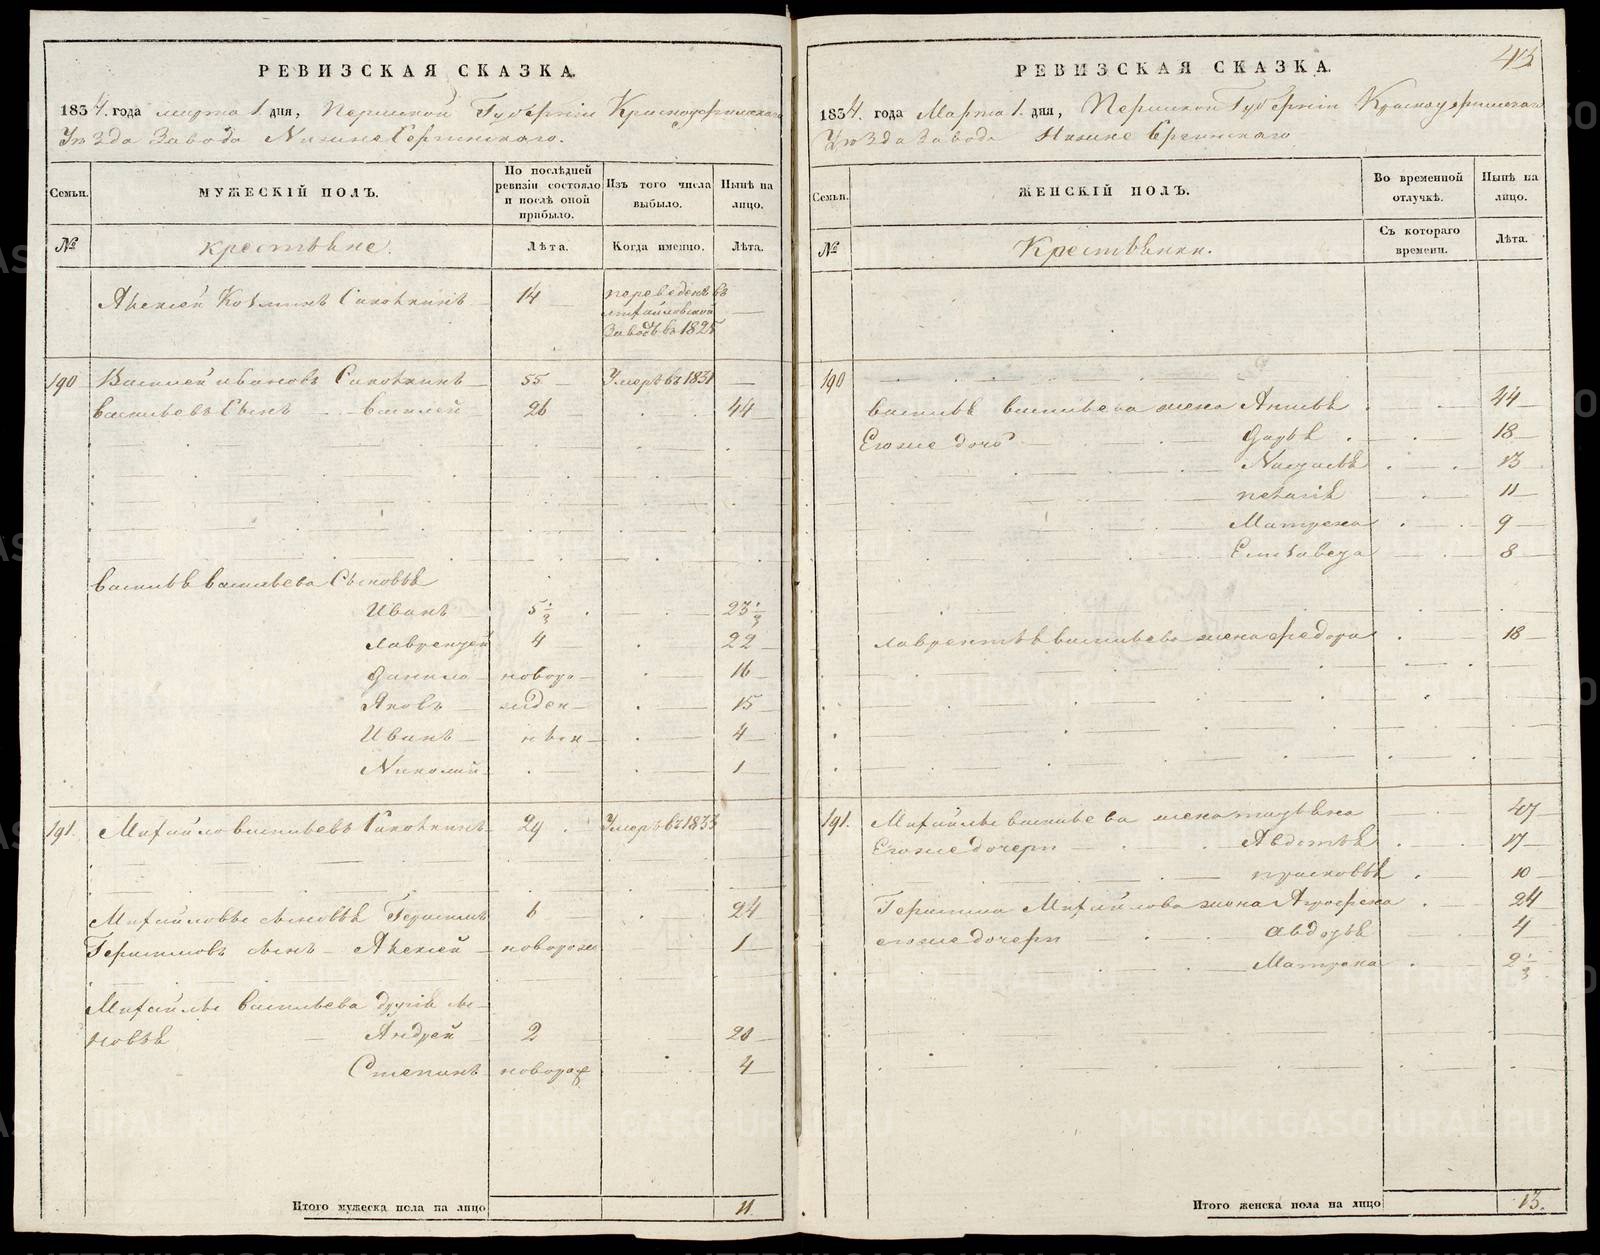 РЕВИЗСКАЯ СКАЗКА.
1834. года марта 1. дня, Пермской Губернiи Красноуфимскаго
Уѣзда Завода НижнеСергинскаго.
Семьи.
МУЖЕСКIЙ ПОЛЪ.
По послѣдней ревизiи состояло и послѣ оной прибыло.
Изъ того числа выбыло.
Нынѣ на лицо.
№
крестьяне.
Лѣта.
Когда именно.
Лѣта.
Алексей Козминъ 14 переведенъ въ
михайловской
Заводъ въ 1825
190 Василей ивановъ 55 Умеръ въ 1831
васильевъ Сынъ василей 26 44
василья васильева Сыновья
Иванъ 5 1/2 23 1/2
лаврентей 4 22
Данило новоро 16
Яковъ жден 15
Иванъ ныя 4
Николай 1
191. Михайло васильевъ 29 Умеръ въ 1833
Михайловы сыновья Герасимъ 6 24
Герасимовъ сынъ Алексей новорож 1
Михайлы васильева другiя сы-
новья Андрей 2 20
Степанъ новорож 4
Итого мужеска пола на лицо 11
43
РЕВИЗСКАЯ СКАЗКА.
1834. года Марта 1. дня, Пермской Губернiи Красноуфимскаго
Уѣзда Завода Нижне Сергинскаго
Семьи.
ЖЕНСКIЙ ПОЛЪ.
Во временной отлучкѣ.
Нынѣ на лицо.
№
Крестьянки.
Съ котораго времени.
Лѣта.
190
василья васильева жена Анисья 44
Егоже дочь Дарья 18
Настасья 13
пелагiя 11
Матрена 9
Елизавета 8
лаврентья васильева жена федора 18
191. Михайлы васильева жена 47
Егоже дочери Авдотья 17
прасковья 10
Герасима Михайлова жена Агрофена 24
егоже дочери 4
Матрена 2 1/2
Итого женска пола на лицо 13.
METRIKI.GASO-URAL.RU